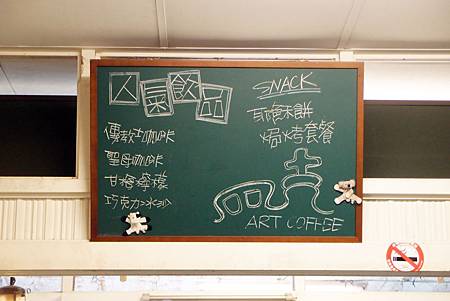 人氣飲品
傳教士咖啡
聖母咖啡
甘橘檸檬
巧克力冰沙
SNACK
可繪禾餅
焗烤套餐
ART COFFEE